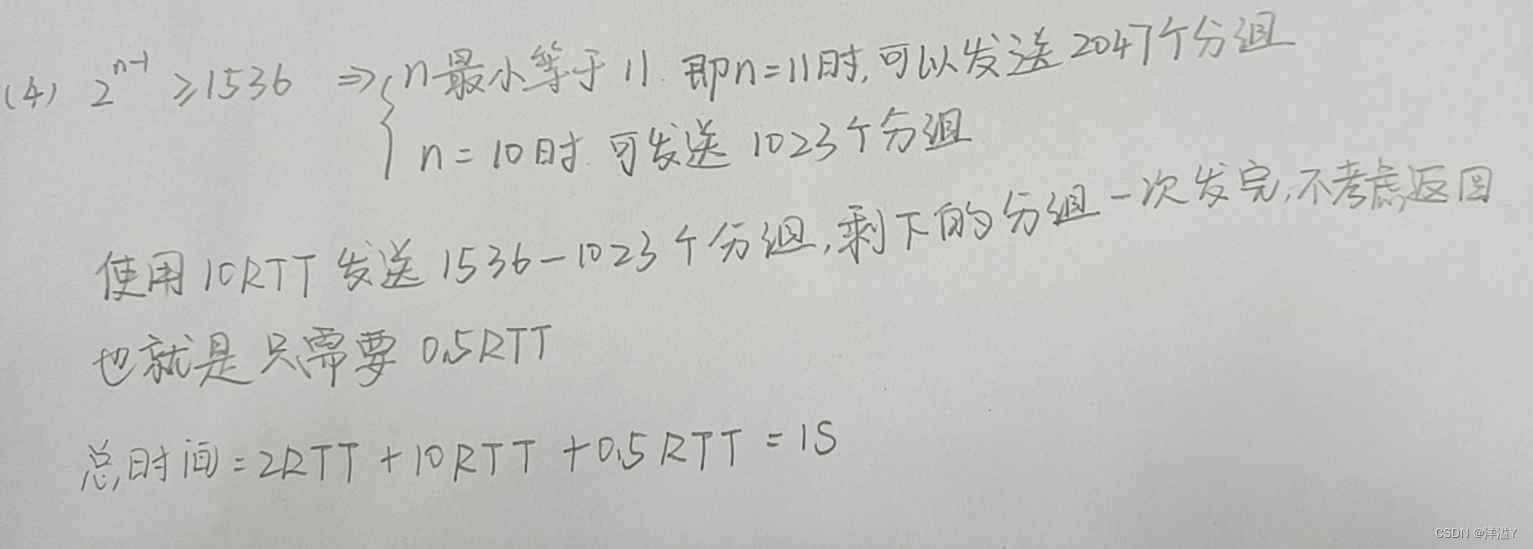 (4) 2^{n-1} ≥1536 ⇒ { n最小等于11. 即n=11时,可以发送2047个分组
n=10时 可发送1023个分组
使用10RTT发送1536-1023个分组,剩下的分组一次发完,不考虑返回
也就是只需要0.5RTT
总时间=2RTT+10RTT+0.5RTT=1S
CSDN @洋溢Y